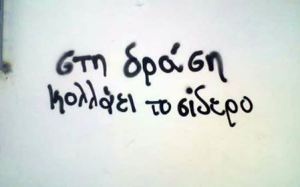 στη δράση
κολλάει το σίδερο